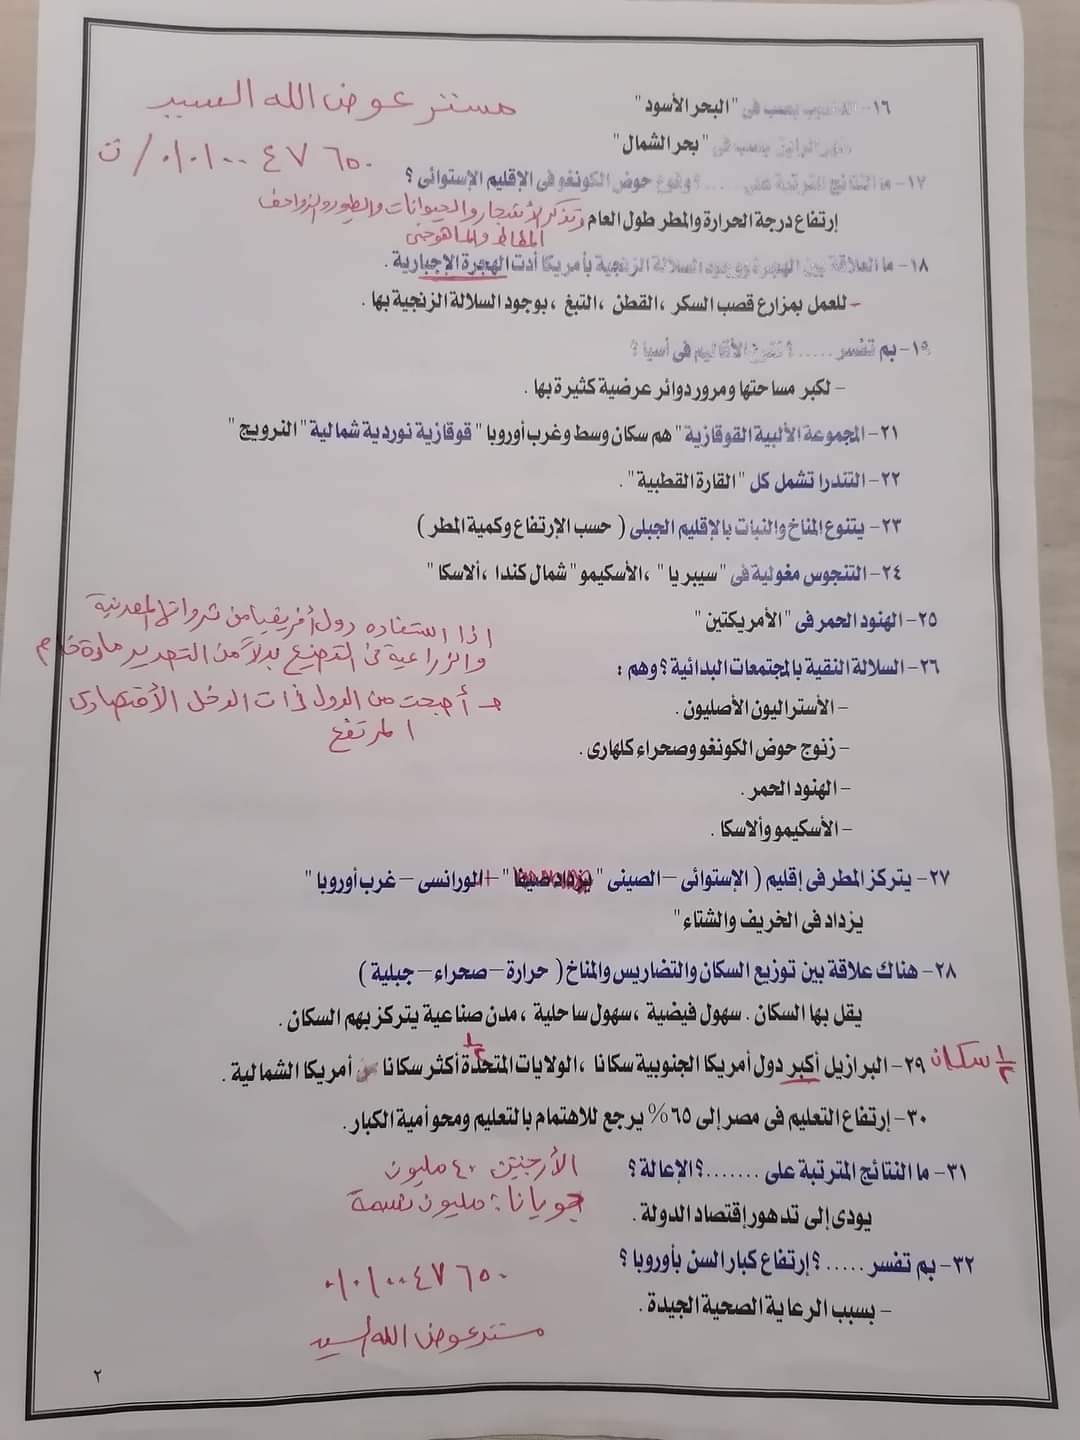 مستر عوض الله السيد
١٦- الدانوب يصب فى "البحر الأسود"
ت / ٠١٠١٠٠٤٧٦٥٠
نهر الراين يصب فى "بحر الشمال"
١٧- ما النتائج المترتبة على ......؟ وقوع حوض الكونغو فى الإقليم الإستوائى ؟
إرتفاع درجة الحرارة والمطر طول العام وتذكر الأشجار والحيوانات والطيور والزواحف
المطاط والماهوجنى
١٨- ما العلاقة بين الهجرة ووجود السلالة الزنجية بأمريكا أدت الهجرة الإجبارية .
- للعمل بمزارع قصب السكر ، القطن ، التبغ ، بوجود السلالة الزنجية بها .
١٩- بم تفسر ..... ؟ تنوع الأقاليم فى أسيا ؟
- لكبر مساحتها ومرور دوائر عرضية كثيرة بها .
٢١- المجموعة الألبية القوقازية" هم سكان وسط وغرب أوروبا " قوقازية نوردية شمالية " النرويج "
٢٢- التندرا تشمل كل "القارة القطبية" .
٢٣- يتنوع المناخ والنبات بالإقليم الجبلى ( حسب الإرتفاع وكمية المطر )
٢٤- التنجوس مغولية فى "سيبريا " ، الأسكيمو" شمال كندا ، ألاسكا "
٢٥- الهنود الحمر فى "الأمريكتين "
اذا استفاده دول أفريقيا من ثرواتها المعدنية
والزراعية فى التصنيع بدلاً من التصدير مادة خام
٢٦- السلالة النقية بالمجتمعات البدائية ؟ وهم :
- أصبحت من الدول ذات الدخل الأقتصادى
المرتفع
- الأستراليون الأصليون .
- زنوج حوض الكونغو وصحراء كلهارى .
- الهنود الحمر .
- الأسكيمو وألاسكا .
٢٧- يتركز المطر فى إقليم ( الإستوائى - الصينى " يزداد صيفا " - اللورانسى - غرب أوروبا "
يزداد فى الخريف والشتاء"
٢٨- هناك علاقة بين توزيع السكان والتضاريس والمناخ ( حرارة - صحراء - جبلية )
يقل بها السكان . سهول فيضية ، سهول ساحلية ، مدن صناعية يتركز بهم السكان .
٢٩- البرازيل أكبر دول أمريكا الجنوبية سكانا ، الولايات المتحدة أكثر سكانا من أمريكا الشمالية .
١/٢ سكان
١/٢
٣٠- إرتفاع التعليم فى مصر إلى ٦٥% يرجع للاهتمام بالتعليم ومحو أمية الكبار .
٣١- ما النتائج المترتبة على .......؟ الإعالة ؟
الأرجنتين ٤٠ مليون
جويانا : مليون نسمة
يودى إلى تدهور إقتصاد الدولة .
٣٢- بم تفسر ..... ؟ إرتفاع كبار السن بأوروبا ؟
٠١٠١٠٠٤٧٦٥٠
- بسبب الرعاية الصحية الجيدة .
مستر عوض الله السيد
٢